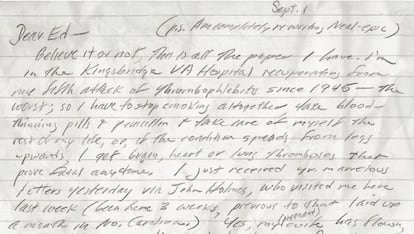 Sept. 1
Dear Ed — (p.s. Am completely rewording Neal-epic)
Believe it or not, this is all the paper I have. I'm
in the Kingsbridge VA Hospital recuperating from
my fifth attack of thrombophlebitis since 1945 — the
worst; so I have to stop smoking altogether take blood-
thinning pills & penicillin & take care of myself the
rest of my life, or, if the condition spreads from legs
upwards, I get brain, heart or lung thrombosis that
prove fatal anytime. I just received yr. marvelous
letters yesterday via John Holmes, who visited me here
last week (been here 3 weeks, previous to that laid up
a month in No. Carolina.) Yes, my wife has flown,